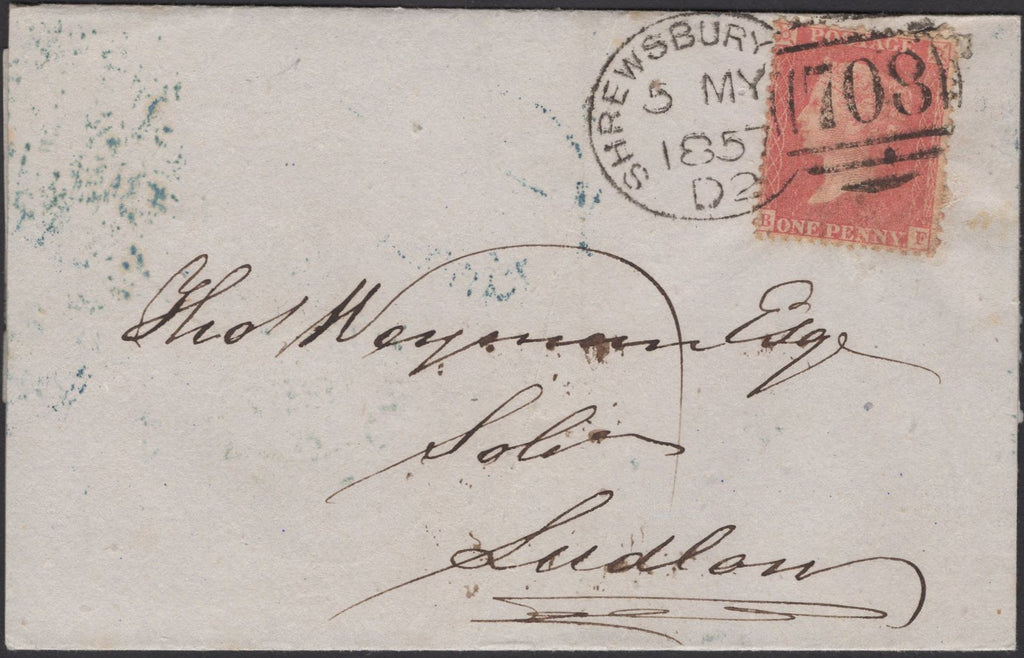 SHREWSBURY
5 MY
1857
D2
POSTAGE
708
B ONE PENNY F
Thos Weyman Esqe
Solr
Ludlow